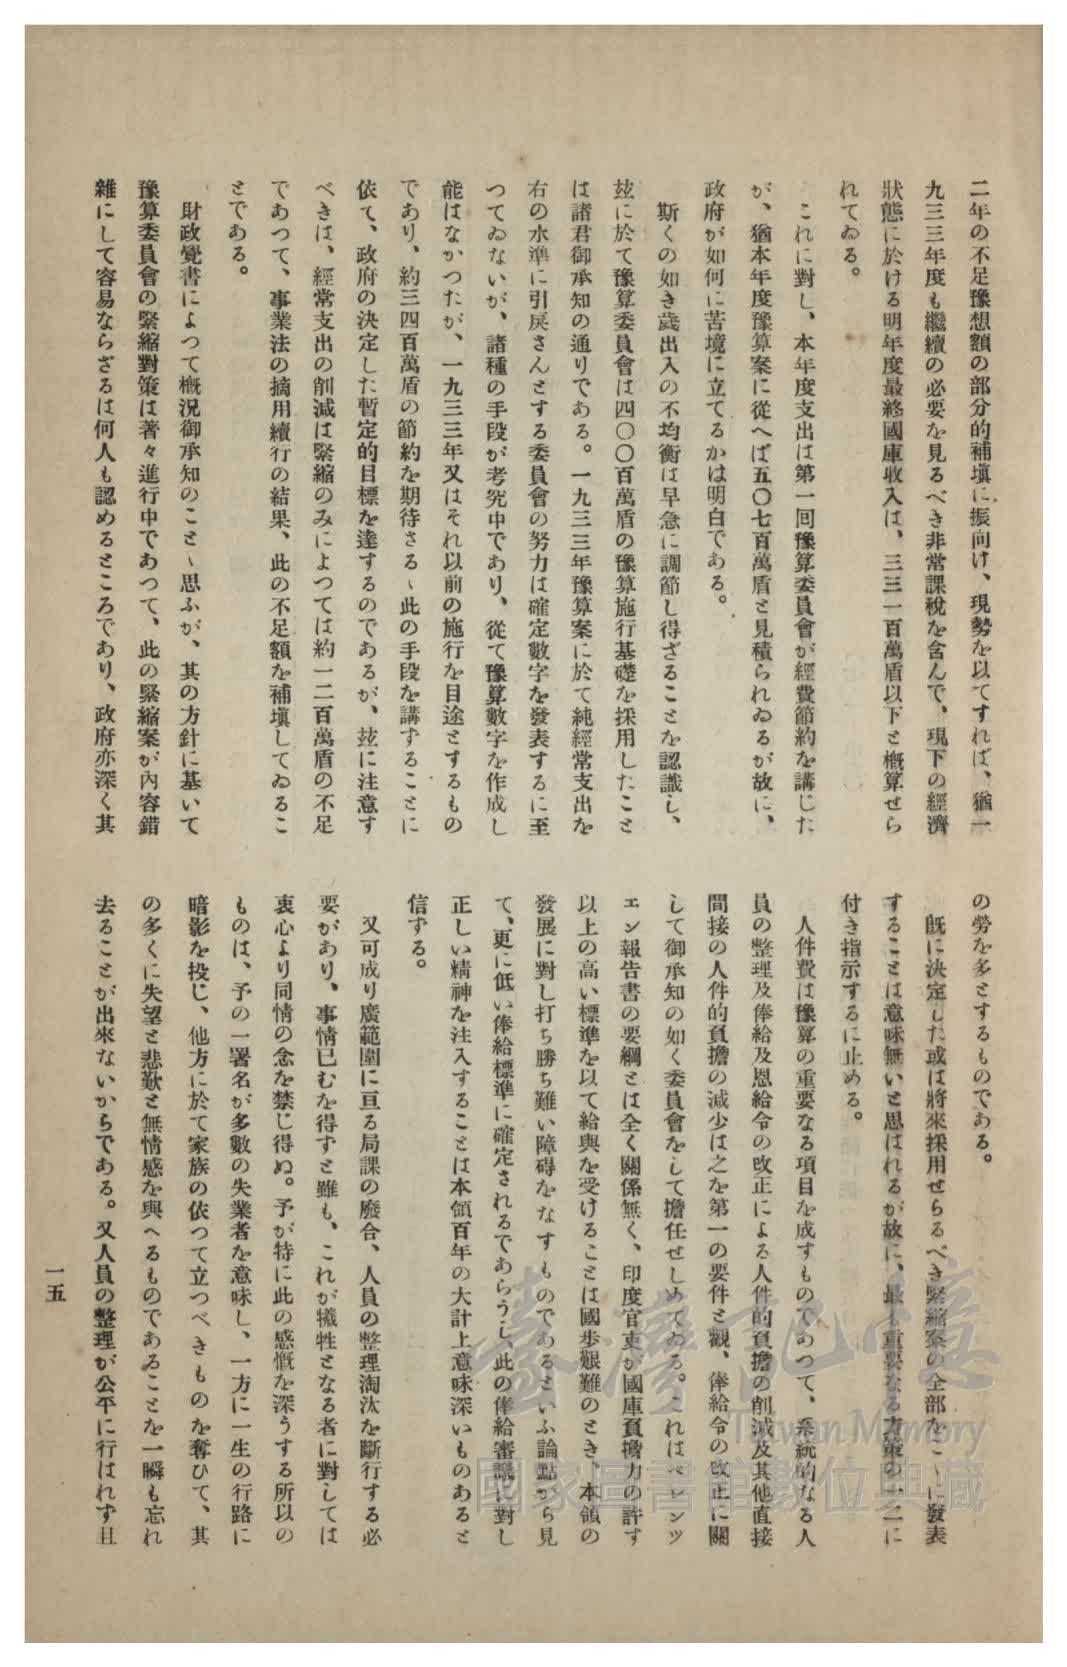 二年の不足豫想額の部分的補塡に振向け、現勢を以てすれば、猶一
九三三年度も繼續の必要を見るべき非常課稅を含んで、現下の經濟
狀態に於ける明年度最終國庫收入は、三三一百萬盾以下と槪算せら
れてゐる。
これに對し、本年度支出は第一回豫算委員會が經費節約を講じた
が、猶本年度豫算案に從へば五〇七百萬盾と見積られゐるが故に、
政府が如何に苦境に立てるかは明白である。
斯くの如き歲出入の不均衡は早急に調節し得ざることを認識し、
玆に於て豫算委員會は四〇〇百萬盾の豫算施行基礎を採用したこと
は諸君御承知の通りである。一九三三年豫算案に於て純經常支出を
右の水準に引戾さんとする委員會の努力は確定數字を發表するに至
つてゐないが、諸種の手段が考究中であり、從て豫算數字を作成し
能はなかつたが、一九三三年又はそれ以前の施行を目途とするもの
であり、約三四百萬盾の節約を期待さるゝ此の手段を講ずることに
依て、政府の決定した暫定的目標を達するのであるが、玆に注意す
べきは、經常支出の削減は緊縮のみによつては約一二百萬盾の不足
であつて、事業法の摘用續行の結果、此の不足額を補塡してゐるこ
とである。
財政覺書によつて槪況御承知のことゝ思ふが、其の方針に基いて
豫算委員會の緊縮對策は著々進行中であつて、此の緊縮案が內容錯
雜にして容易ならざるは何人も認めるところであり、政府亦深く其
の勞を多とするものである。
旣に決定した或は將來採用せらるべき緊縮案の全部をこゝに發表
することは意味無いと思はれるが故に、最も重要なる方策の一二に
付き指示するに止める。
人件費は豫算の重要なる項目を成すものであつて、系統的なる人
員の整理及俸給及恩給令の改正による人件的負擔の削減及其他直接
間接の人件的負擔の減少は之を第一の要件と觀、俸給令の改正に關
して御承知の如く委員會をして擔任せしめてゐる。これはベレンツ
エン報告書の要綱とは全く關係無く、印度官吏が國庫負擔力の許す
以上の高い標準を以て給與を受けることは國步艱難のとき、本領の
發展に對し打ち勝ち難い障碍をなすものであるといふ論點から見
て、更に低い俸給標準に確定されるであらうし、此の俸給審議に對し
正しい精神を注入することは本領百年の大計上意味深いものあると
信ずる。
又可成り廣範圍に亘る局課の廢合、人員の整理淘汰を斷行する必
要があり、事情已むを得ずと雖も、これが犧牲となる者に對しては
衷心より同情の念を禁じ得ぬ。予が特に此の感慨を深うする所以の
ものは、予の一署名が多數の失業者を意味し、一方に一生の行路に
暗影を投じ、他方に於て家族の依つて立つべきものを奪ひて、其
の多くに失望と悲歎と無情感を與へるものであることを一瞬も忘れ
去ることが出來ないからである。又人員の整理が公平に行はれず且
一五
臺灣記憶
Taiwan Memory
國家圖書館數位典藏